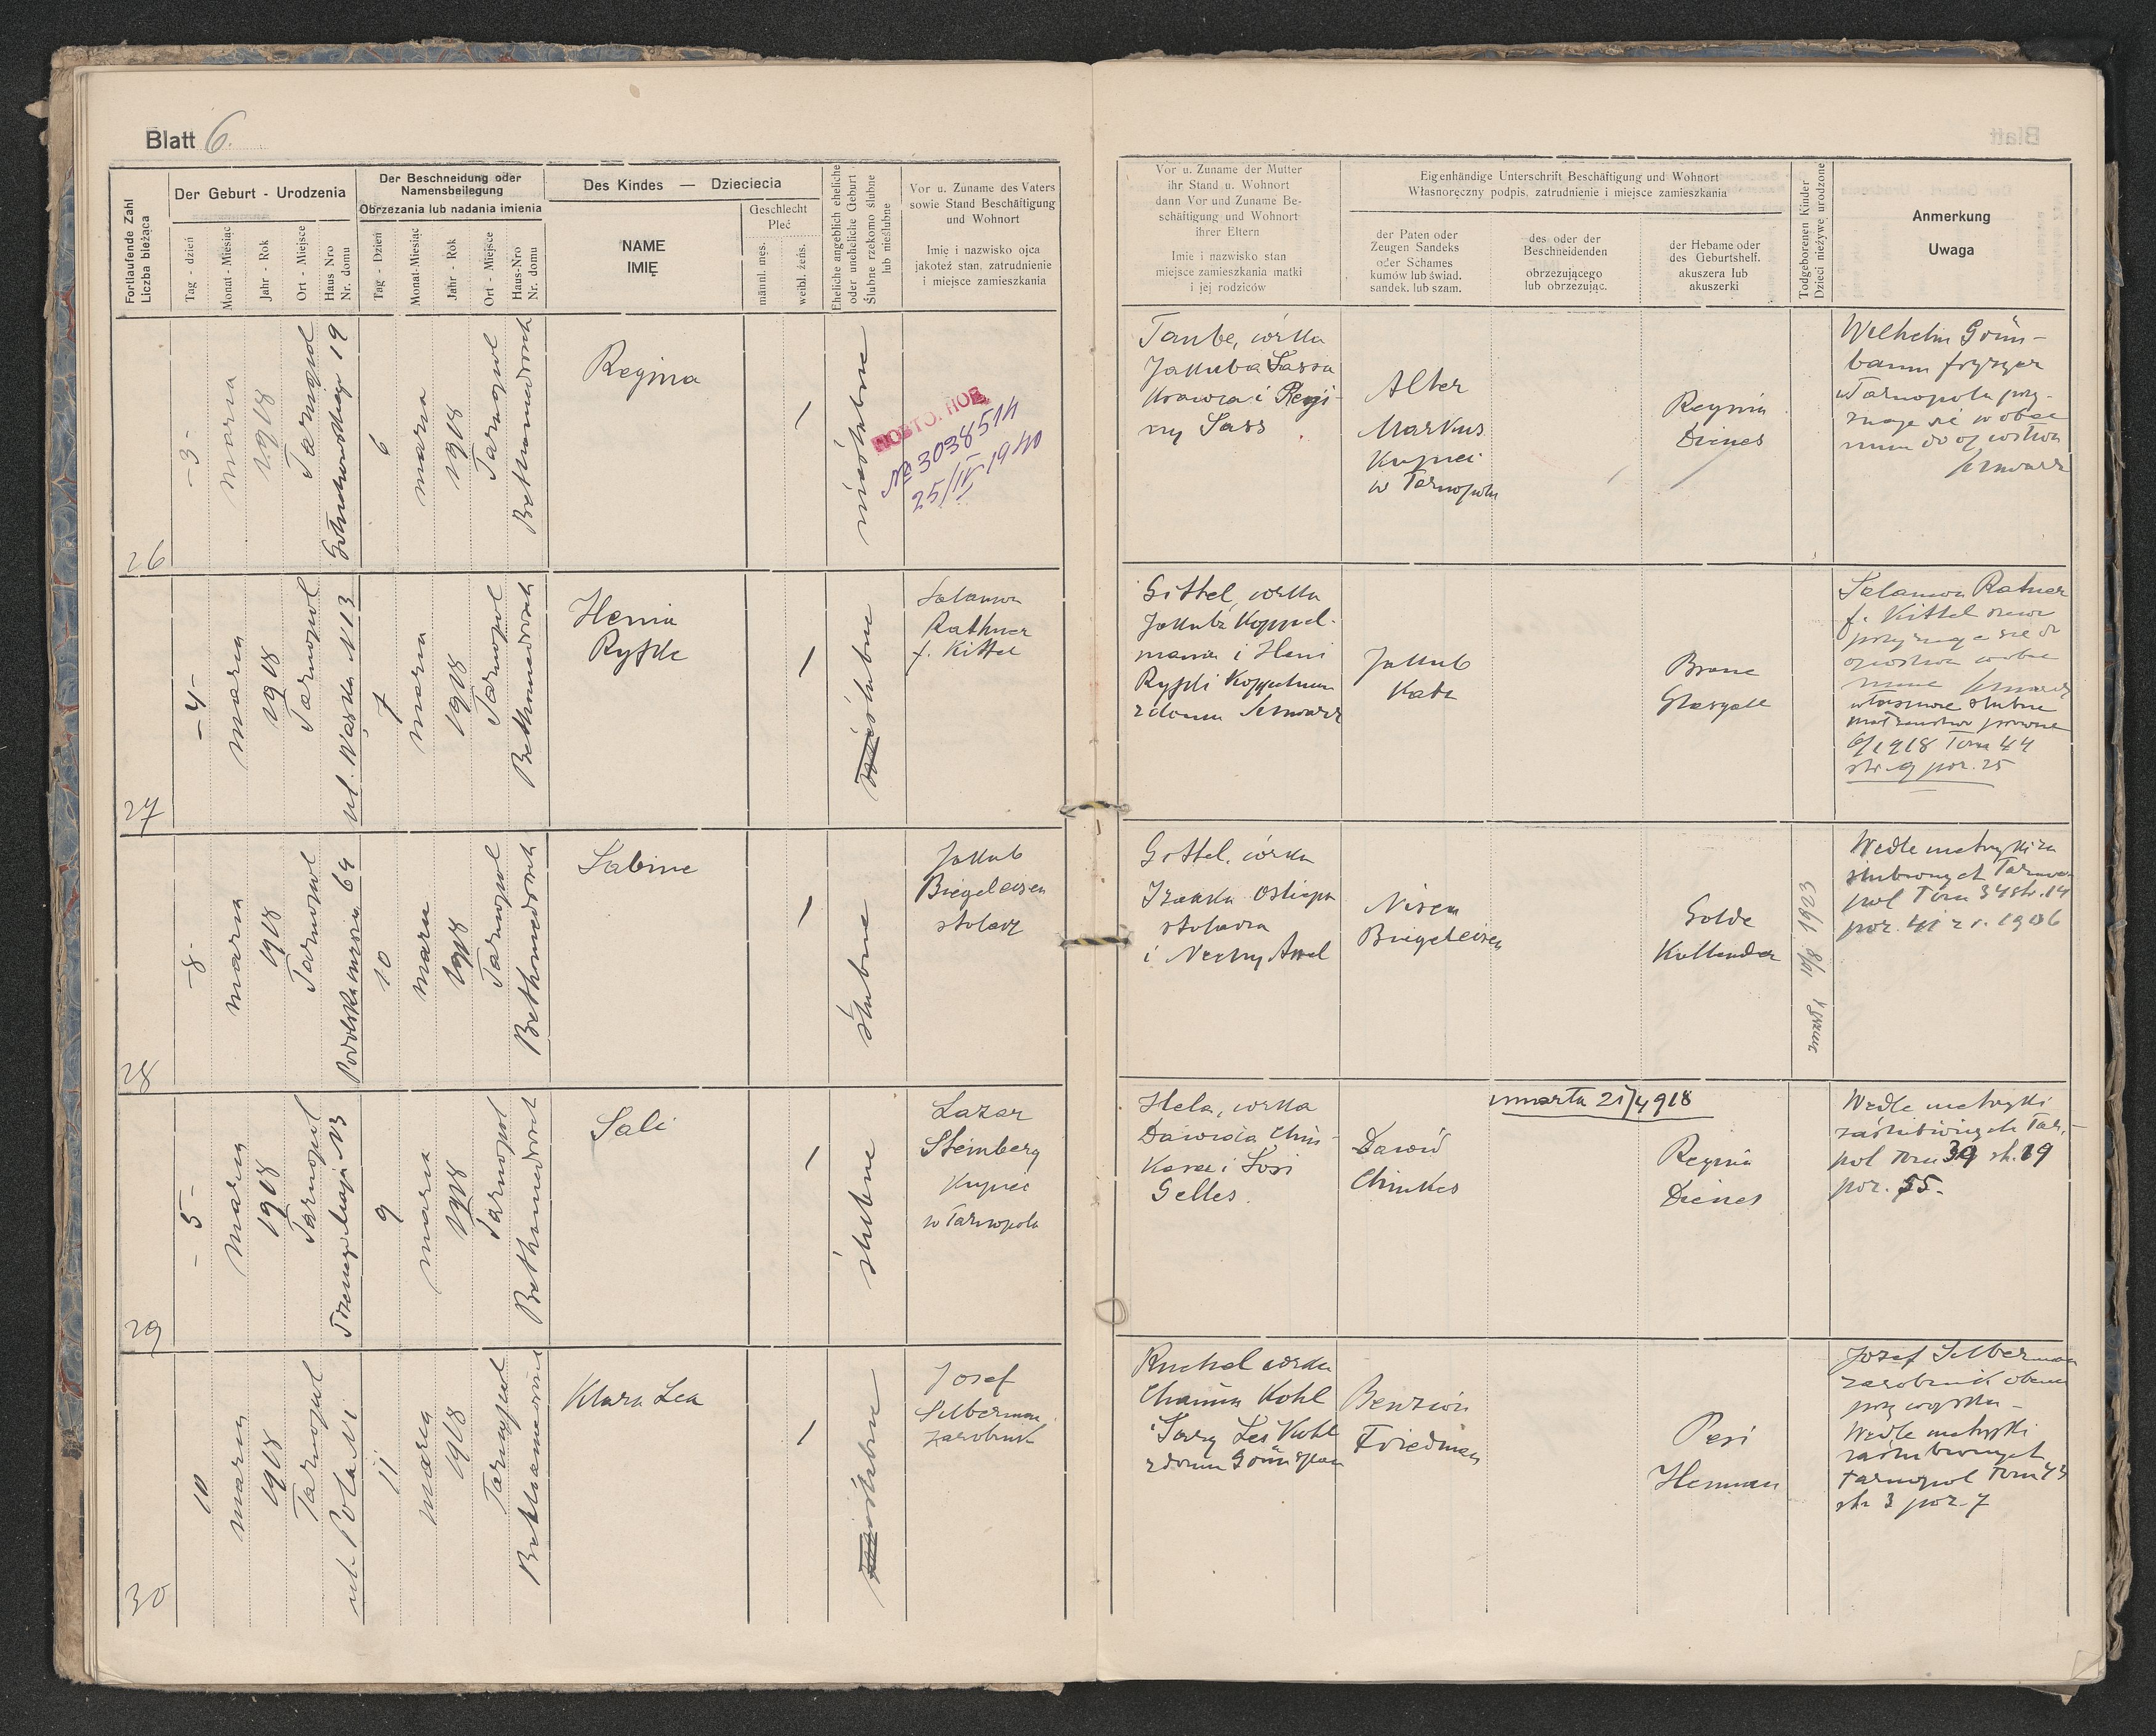 Blatt 6.
Fortlaufende Zahl
Liczba bieżąca
Der Geburt - Urodzenia
Tag - dzień
Monat - Miesiąc
Jahr - Rok
Ort - Miejsce
Haus Nro
Nr. domu
Der Beschneidung oder
Namensbeilegung
Obrzezania lub nadania imienia
Tag - Dzień
Monat-Miesiąc
Jahr - Rok
Ort - Miejsce
Haus-Nro
Nr. domu
Des Kindes — Dzieciecia
NAME
IMIĘ
Geschlecht
Płeć
männl. męs.
weibl. żeńs.
Eheliche angeblich eheliche
oder uneheliche Geburt
Ślubne rzekomo ślubne
lub nieślubne
Vor u. Zuname des Vaters
sowie Stand Beschäftigung
und Wohnort
Imię i nazwisko ojca
jakoteż stan, zatrudnienie
i miejsce zamieszkania
Vor u. Zuname der Mutter
ihr Stand u. Wohnort
dann Vor und Zuname Be-
schäftigung und Wohnort
ihrer Eltern
Imie i nazwisko stan
miejsce zamieszkania matki
i jej rodziców
Eigenhändige Unterschrift Beschäftigung und Wohnort
Własnoręczny podpis, zatrudnienie i miejsce zamieszkania
der Paten oder
Zeugen Sandeks
oder Schames
kumów lub świad.
sandek. lub szam.
des oder der
Beschneidenden
obrzezującego
lub obrzezując.
der Hebame oder
des Geburtshelf.
akuszera lub
akuszerki
Todgeborenen Kinder
Dzieci nieżywe urodzone
Anmerkung
Uwaga
26
-3-
marca
1918
Tarnopol
19
6
marca
1918
Tarnopol
Regina
1
nieślubne
ПОВТО. ПОВ.
№ 3038514
25/IV 1940
Taube, córka
Jakuba Sassa
krawca i Regi-
ny Sass
Alter
Markus
kupiec
w Tarnopolu
Regina
Dienes
Wilhelm Grün-
baum fryzyer
w Tarnopolu przy-
znaje się w obec
27
-4-
marca
1918
Tarnopol
ul. Wąska N 13
7
marca
1918
Tarnopol
Henia
Ryfke
1
ślubne
Salamon
Rathner
f. Kittel
Gittel, córka
Jakuba Koppel-
mana i Heni
Ryfki Koppelman
z domu Schwarz
Jakub
Katz
Brane
Glasgall
Salamon Ratner
f. Kittel
przyznaje się do
ojcostwa w obec
6/1918 Tom 44
str. 9 poz. 25
28
-8-
marca
1918
Tarnopol
10
marca
1918
Tarnopol
Sabine
1
ślubne
Jakub
Biegeleisen
stolarz
Gittel, córka
stolarza
Nisen
Biegeleisen
Golde
Kallender
1923
Wedle metryki za
ślubionych Tarno-
pol Tom 34 str. 14
poz. 41 z r. 1906
29
-5-
marca
1918
Tarnopol
9
marca
1918
Tarnopol
Sali
1
ślubne
Lazar
Steinberg
kupiec
w Tarnopolu
Hela, córka
Dawida Chin-
kesa i Sosi
Gelles.
Dawid
Chinkes
umarła 21/4 918
Regina
Dienes
Wedle metryki
zaślubionych Tar-
pol Tom 39 str. 19
poz. 55.
30
10
marca
1918
Tarnopol
11
marca
1918
Tarnopol
Klara Lea
1
ślubne
Josef
Silberman
zarobnik
Ruchel córka
Chaima Kohl
i Sary Lei Kohl
Benzion
Friedman
Pesi
Herman
Józef Silberman
zarobnik obecn
przy wojsku -
Wedle metryki
zaślubionych
Tarnopol Tom 43
str 3 poz. 7